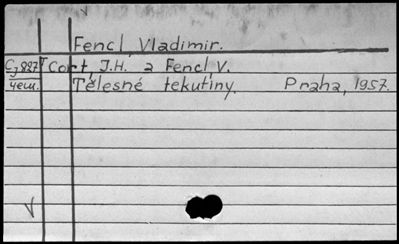 Fencl, Vladimir.
Cj 827 Cort, J.H. a Fencl, V.
чеш. Tělesné tekutiny. Praha, 1957.
V